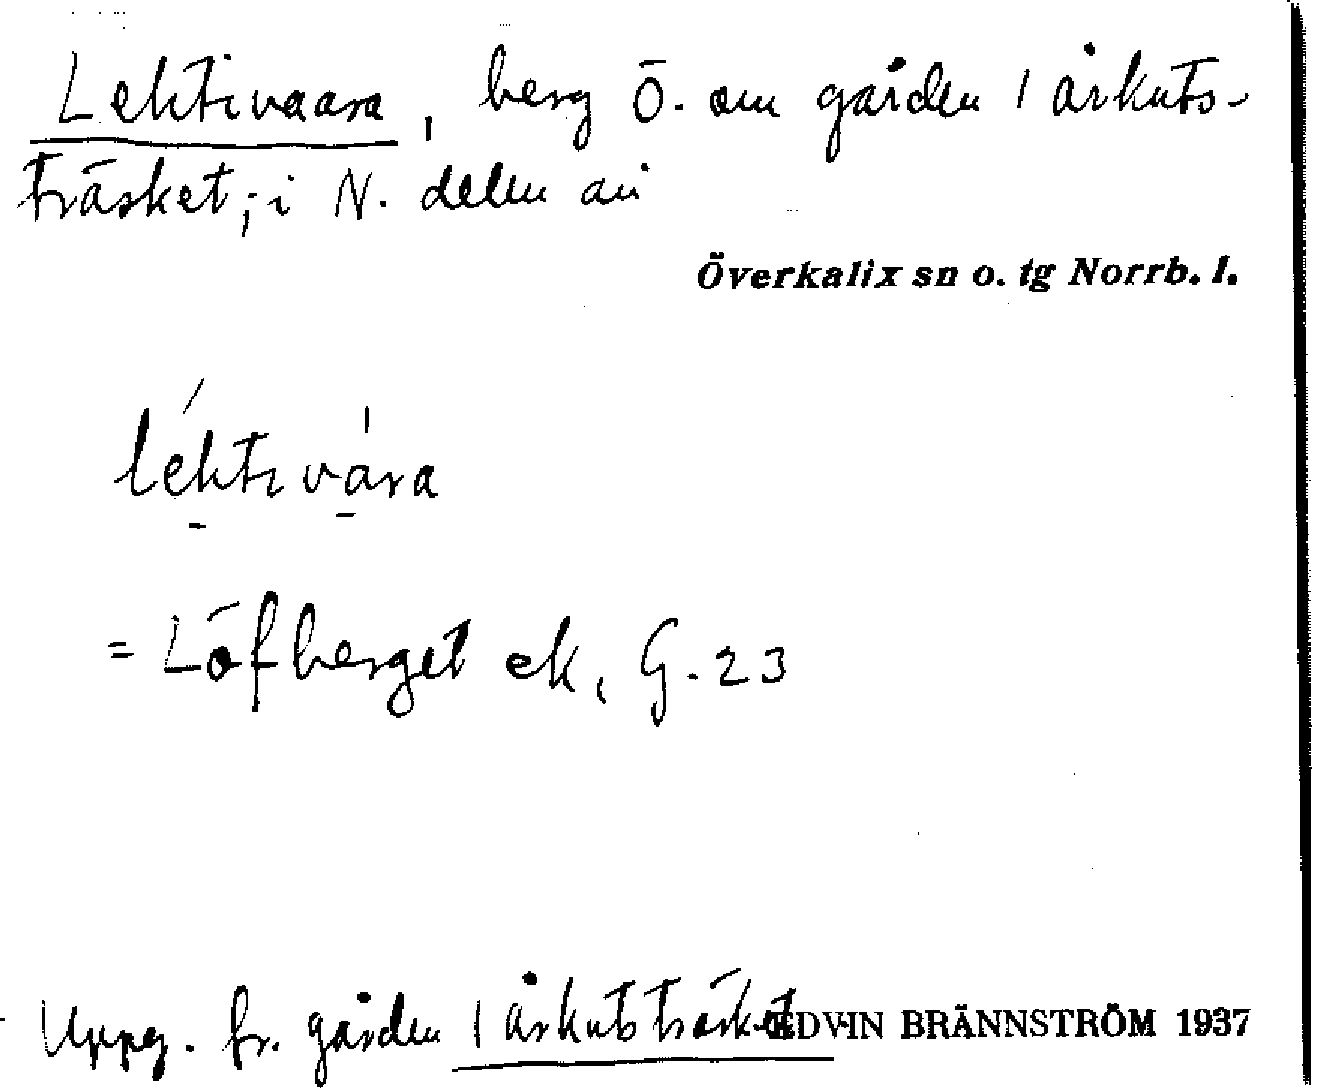 Lehtivaara, berg Ö. om gården 1 Årkuts-
träsket, i N. delen av
Överkalix sn o. tg Norrb. l.
léhtivára
= Löfberget ek, G. 23
Uppg. fr. gården 1 Årkutsträsket EDVIN BRÄNNSTRÖM 1937